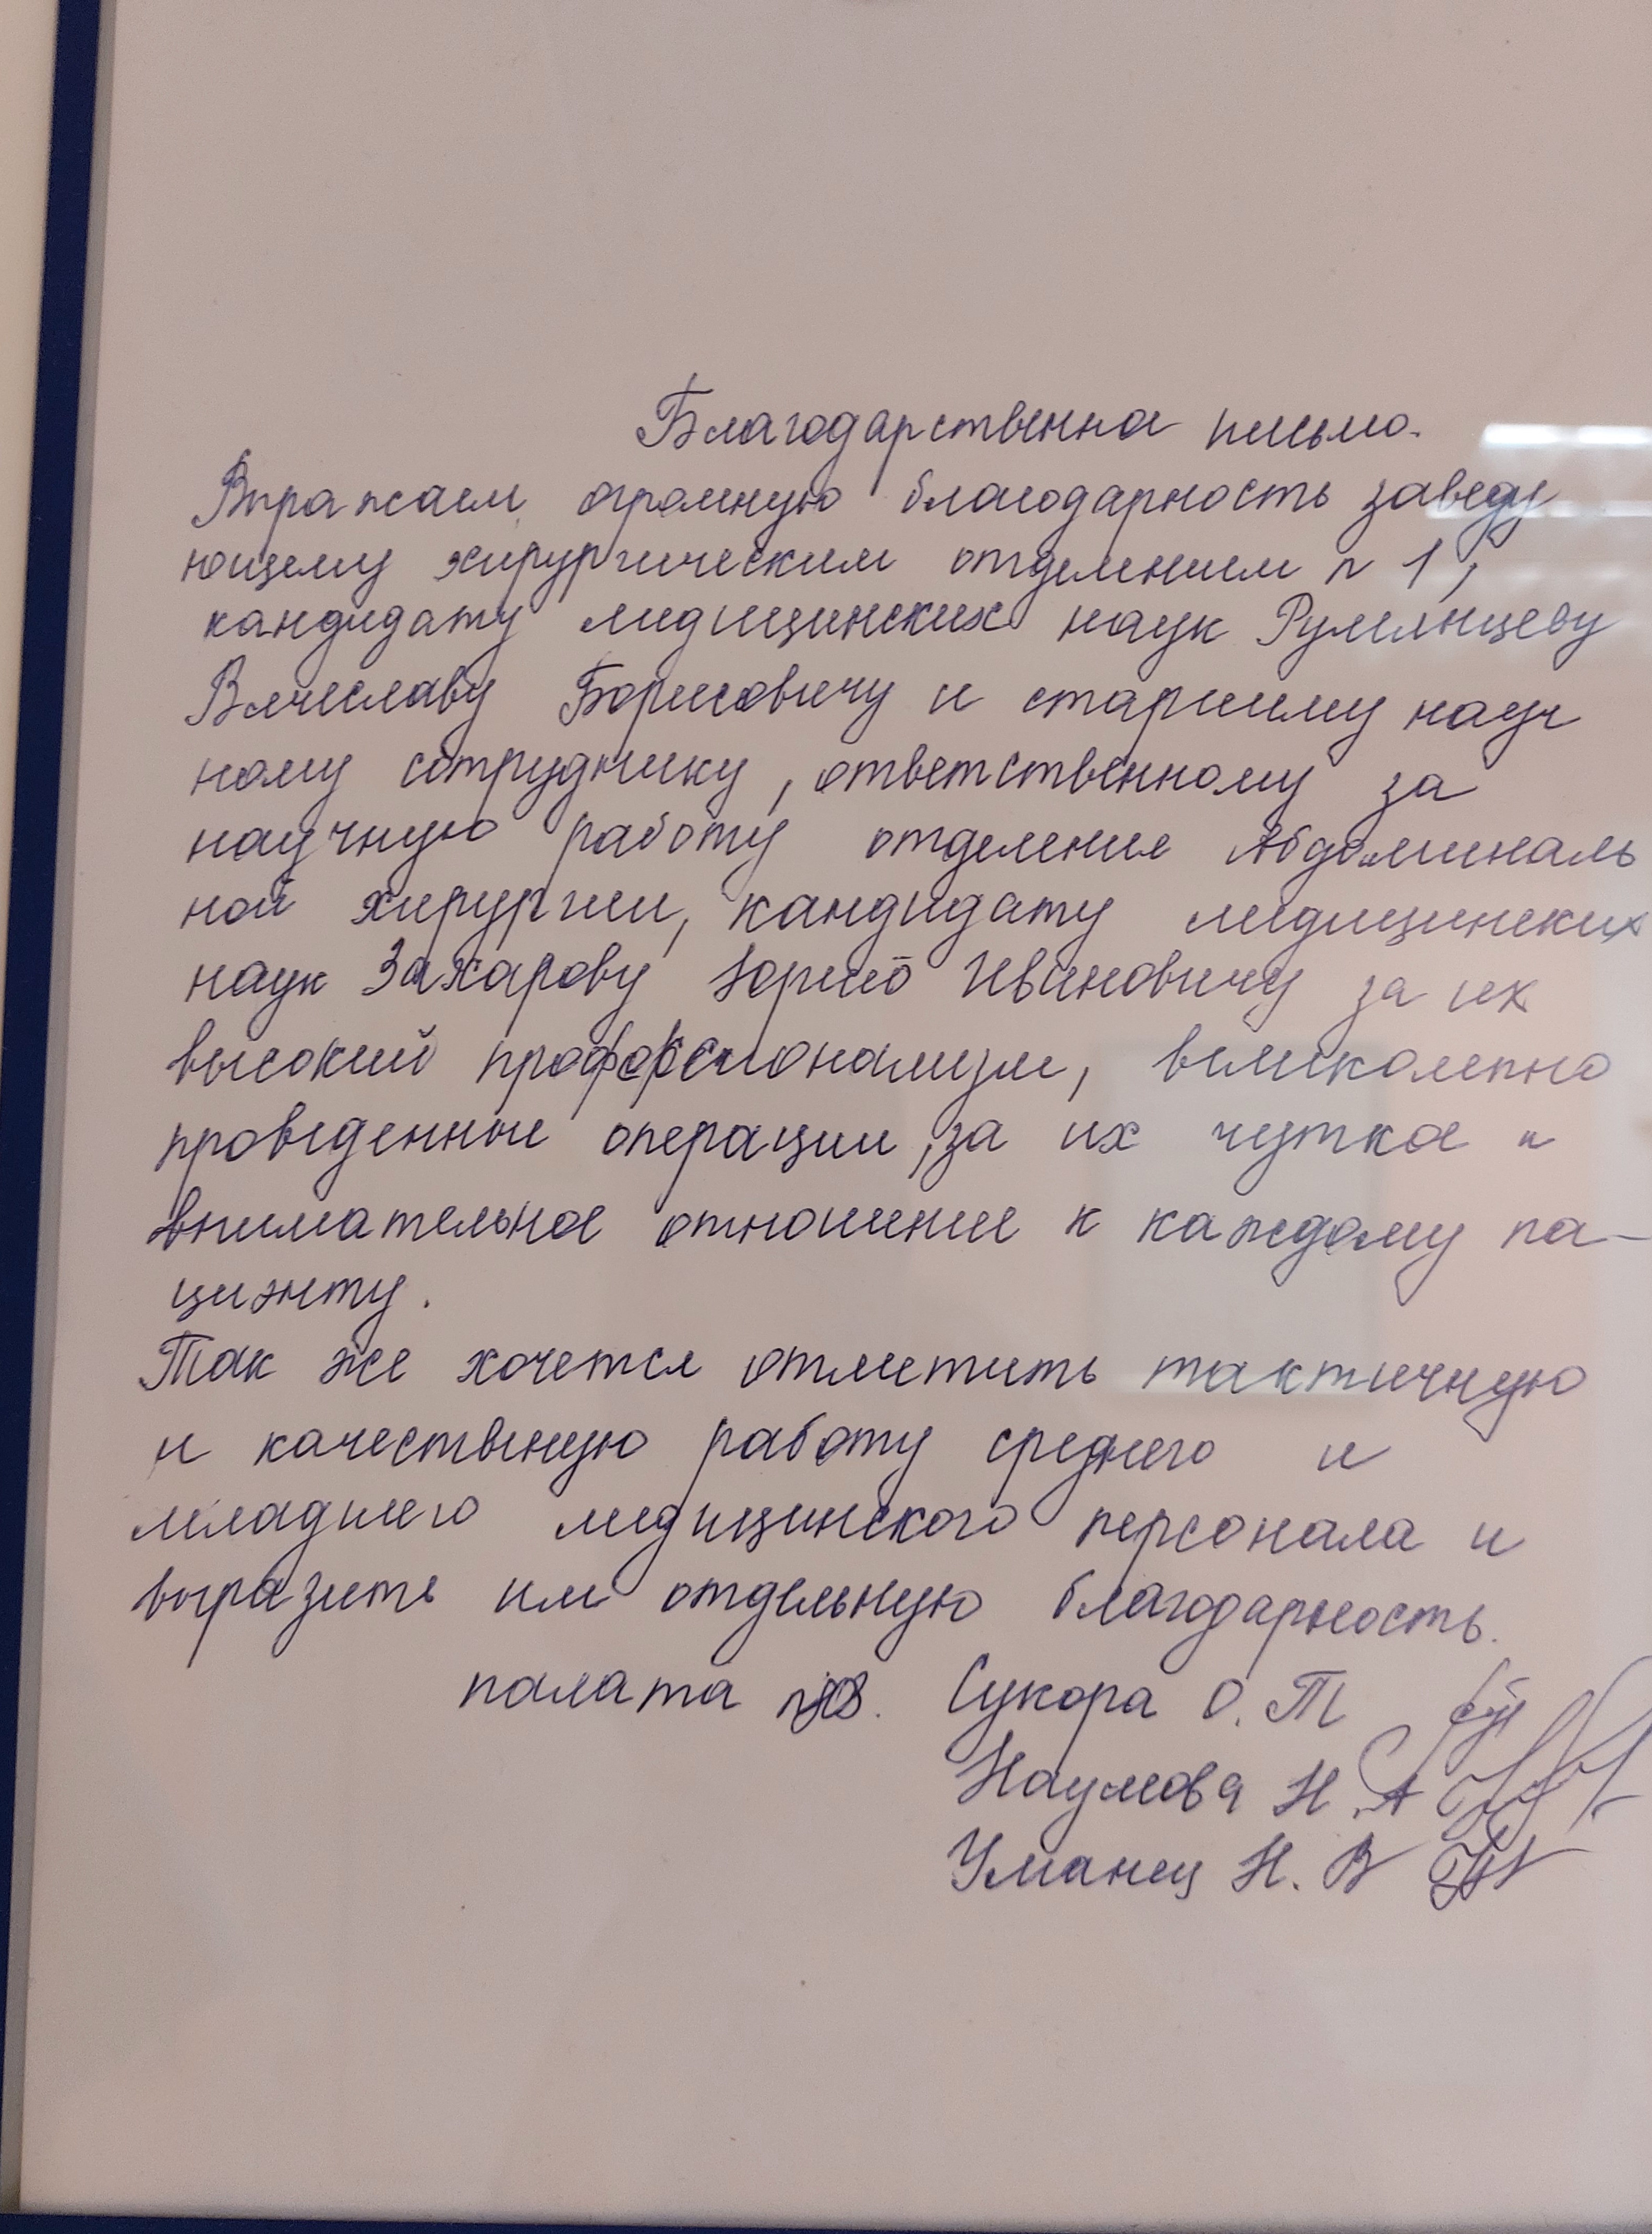 Благодарственна письмо.
Выражаем огромную благодарность заведу
ющему хирургическим отделением n 1,
кандидату медицинских наук Румянцеву
Вячеславу Борисовичу и старшему науч
ному сотруднику, ответственному за
научную работу отделение Абдоминаль
ной хирургии, кандидату медицинских
наук Захарову Юрию Ивановичу за их
высокий профессионализм, великолепно
проведенные операции, за их чуткое и
внимательное отношение к каждому па-
циэнту.
Так же хочется отметить тактичную
и качествную работу среднего и
младшего медицинского персонала и
выразить им отдельную благодарность.
палата Сукора О. Т
Наумова Н. А
Уманец Н. В